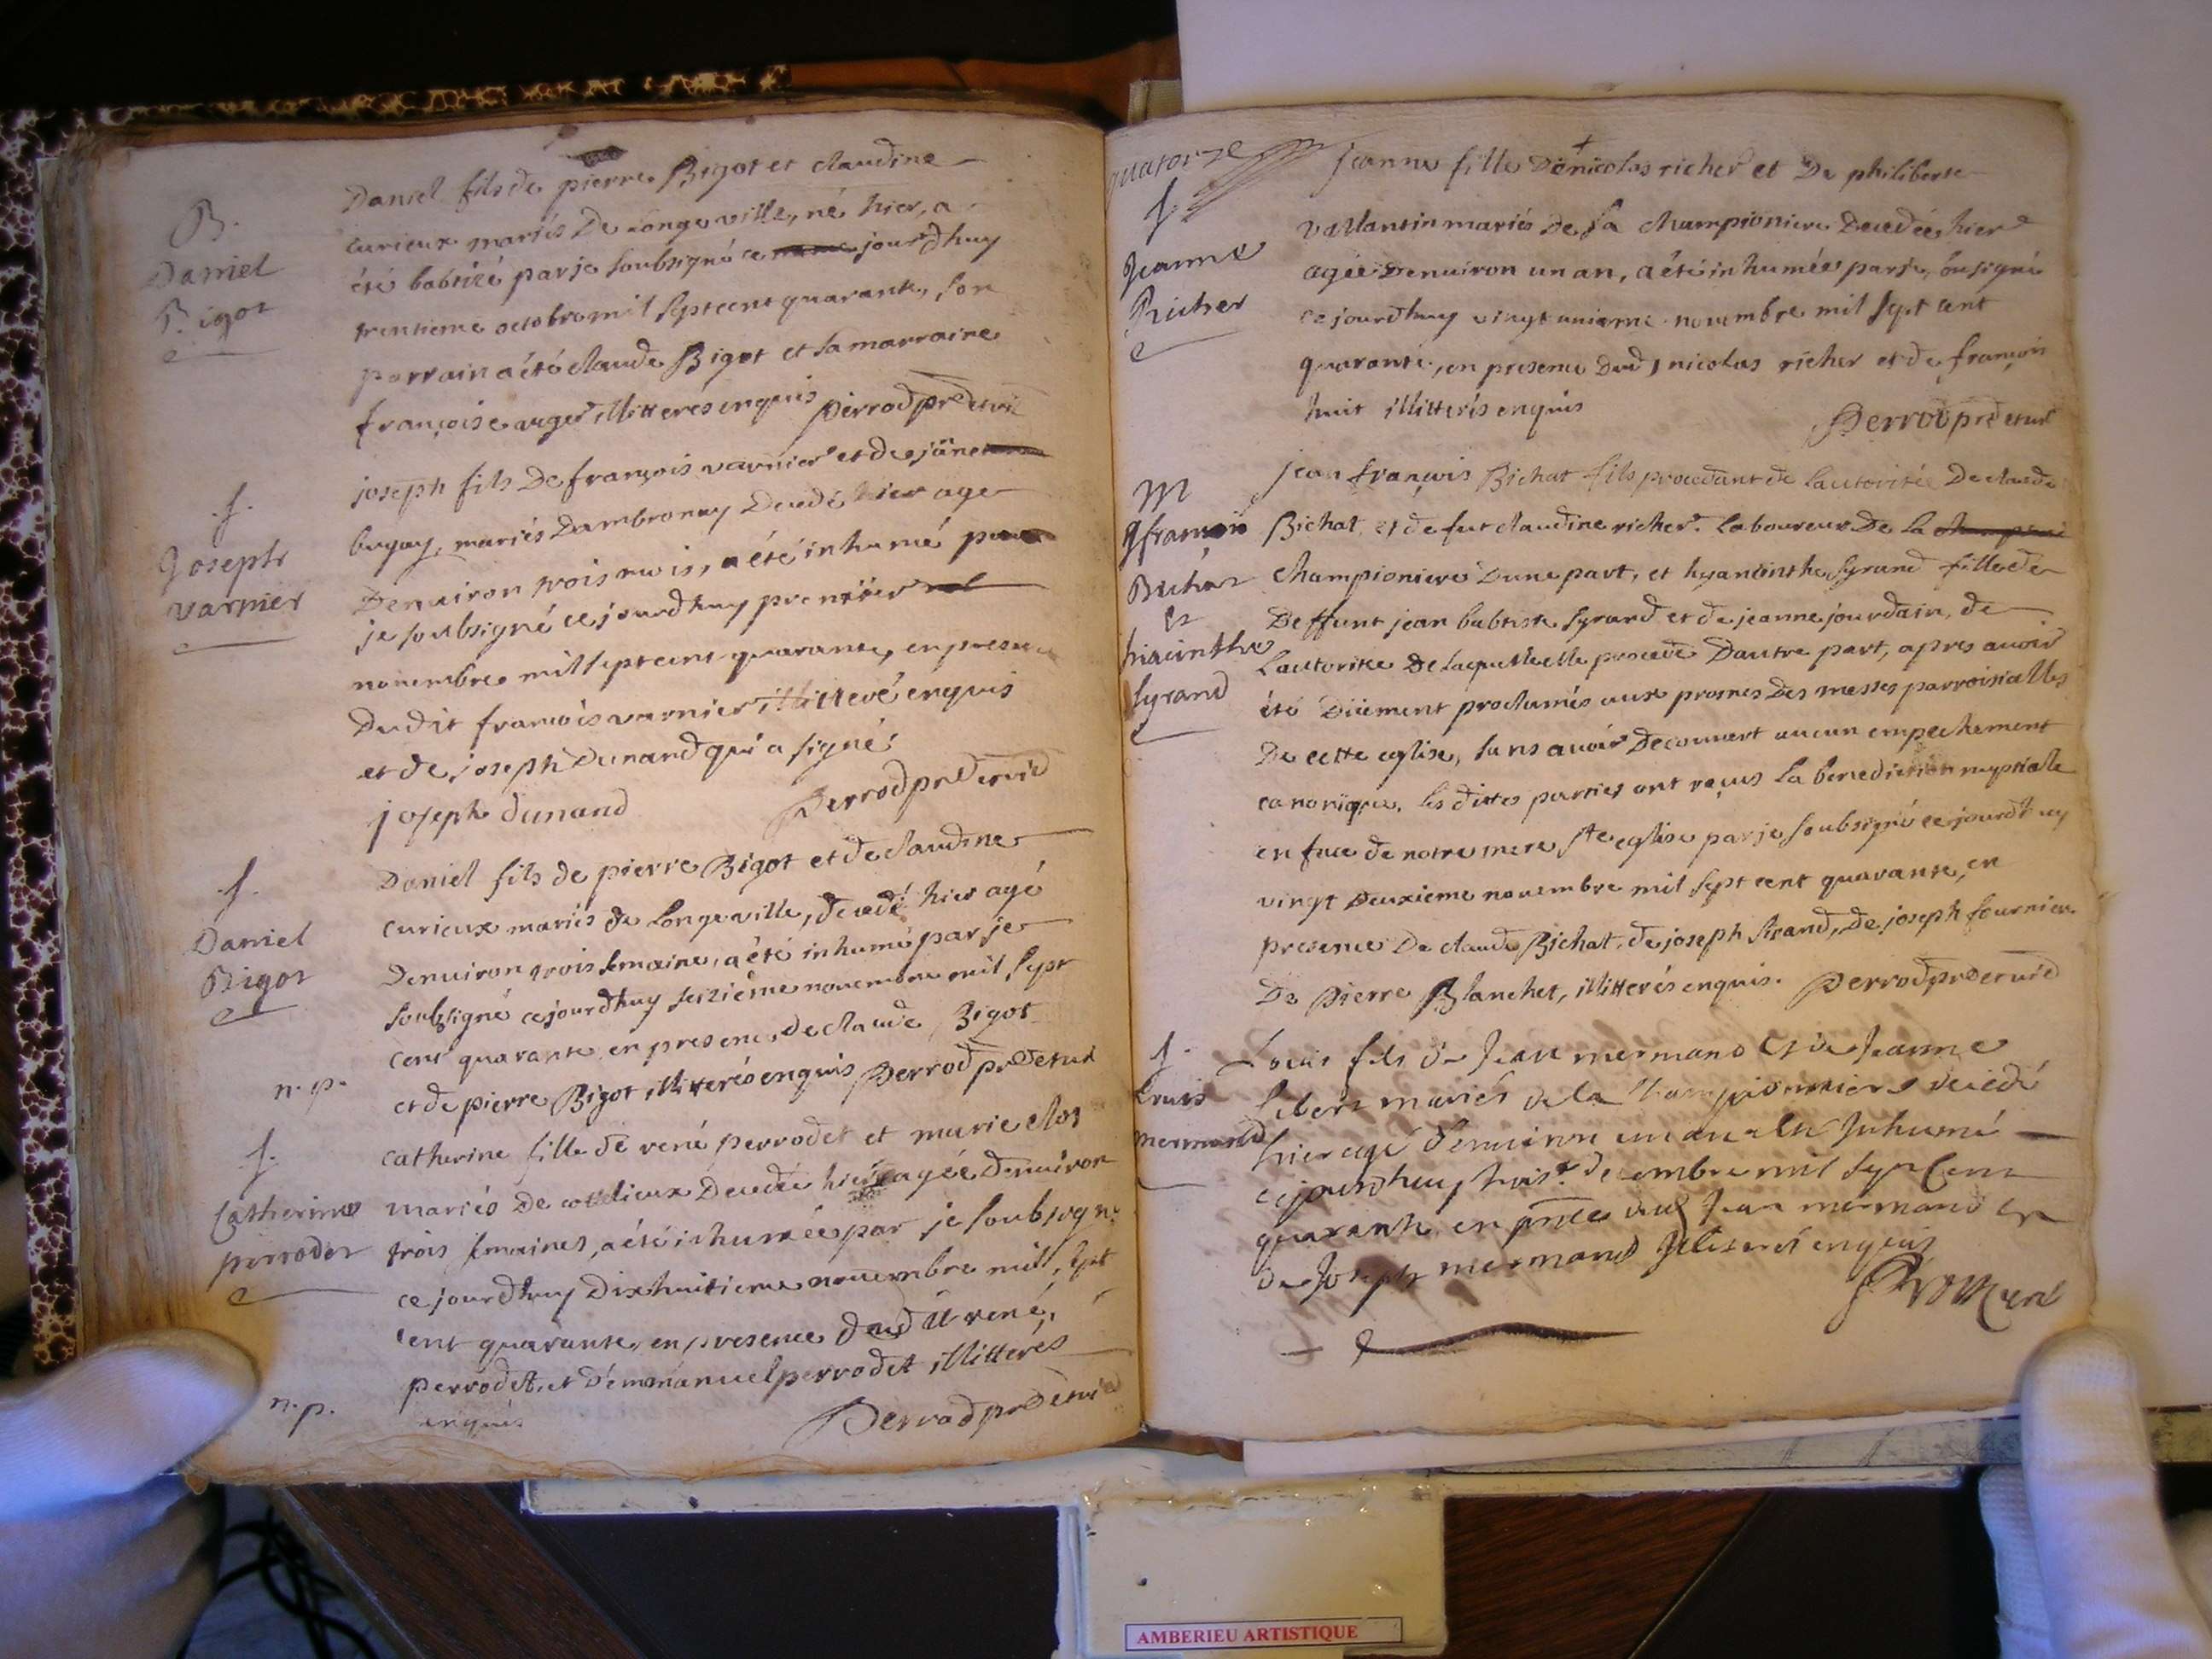 B.
Daniel
Bigot
Daniel fils de pierre Bigot et claudine
curieux mariés De Longeville, né hier, a
été babtizé par je soubsigné ce jourdhuy
trentieme octobre mil septcent quarante, son
parrain a été claude Bigot et sa marraine
françoise auger illitteres enquis Perrod prê et vic
f.
Joseph
varnier
joseph fils De françois varnier et de jäne
bugay, mariés Dambronay Decedé hier age
Denuiron trois mois, a été inhumé par
je soubsigné ce jourdhuy premïer
nouembre mil septcent quarante, en presence
Dudit françois varnier illitteré enquis
et de joseph Dunand qui a signé
joseph dunand Perrod prê et vic
f.
Daniel
Bigot
n. p.
Daniel fils de pierre Bigot et de claudine
curieux mariés de Longeville, decedé hier agé
Denuiron trois semaine, a été inhumé par je
soubsigné ce jourdhuy seizième nouembre mil sept
cent quarante, en presence de claude Bigot
et de pierre Bigot illitterés enquis Perrod prê et vic
f.
Catherine
perrodet
n. p.
catherine fille de rené perrodet et marie clos
mariés De Decedée hier agée denuiron
trois semaines, a été inhumée par je soubsigné
ce jourdhuy Dixhuitieme nouembre mill, sept
cent quarante, en presence dudit rené,
perrodet, et d'emmanuel perrodet illitterés
enquis Perrod prê et vic
quatorze
f.
Jeanne
Richer
jeanne fille De nicolas richer et De philiberte
vallantin mariés De La Championiere Decedée hier
agée Denuiron un an, a été inhumée par je, sousigné
ce jourdhuy vingt unieme nouembre mil sept cent
quarante, en presence dud nicolas richer et de françois
huit illitterés enquis
Perrod prê et vic
M
J françois
Bichat
et
hiacinthe
syrand
jean françois Bichat fils procedant de Lautorité De claude
Bichat, et de fut claudine richer. Laboureur De La
Championiere Dune part, et hyacinthe syrand fille de
Deffunt jean babtiste syrand et de jeanne jourdain, de
Lautoritée De laquelle elle procede Dautre part, apres auoir
été Düement proclamés aux prosnes Des messes parroisialles
De cette eglise, sans auoir Decouuert aucun empechement
canonique, les dittes parties ont reçus La benediction nuptiale
en face de notre mere Ste eglise par je soubsigné ce jourdhuy
vingt Deuxieme nouembre mil sept cent quarante, en
presence De claude Bichat, de joseph sirand, De joseph fournier
De Pierre Blanchet, illitterés enquis. Perrod prê et vic
f.
Louis
mermand
Louis fils de Jean mermand et de Jeanne
sibert mariés de la Championniere decedé
hier agé denuiron un an a été Inhumé
cejourdhuy huit.e decembre mil sept Cent
quarante en pnce dud Jean mermand et
de Joseph mermand Illiterés enquis
AMBERIEU ARTISTIQUE